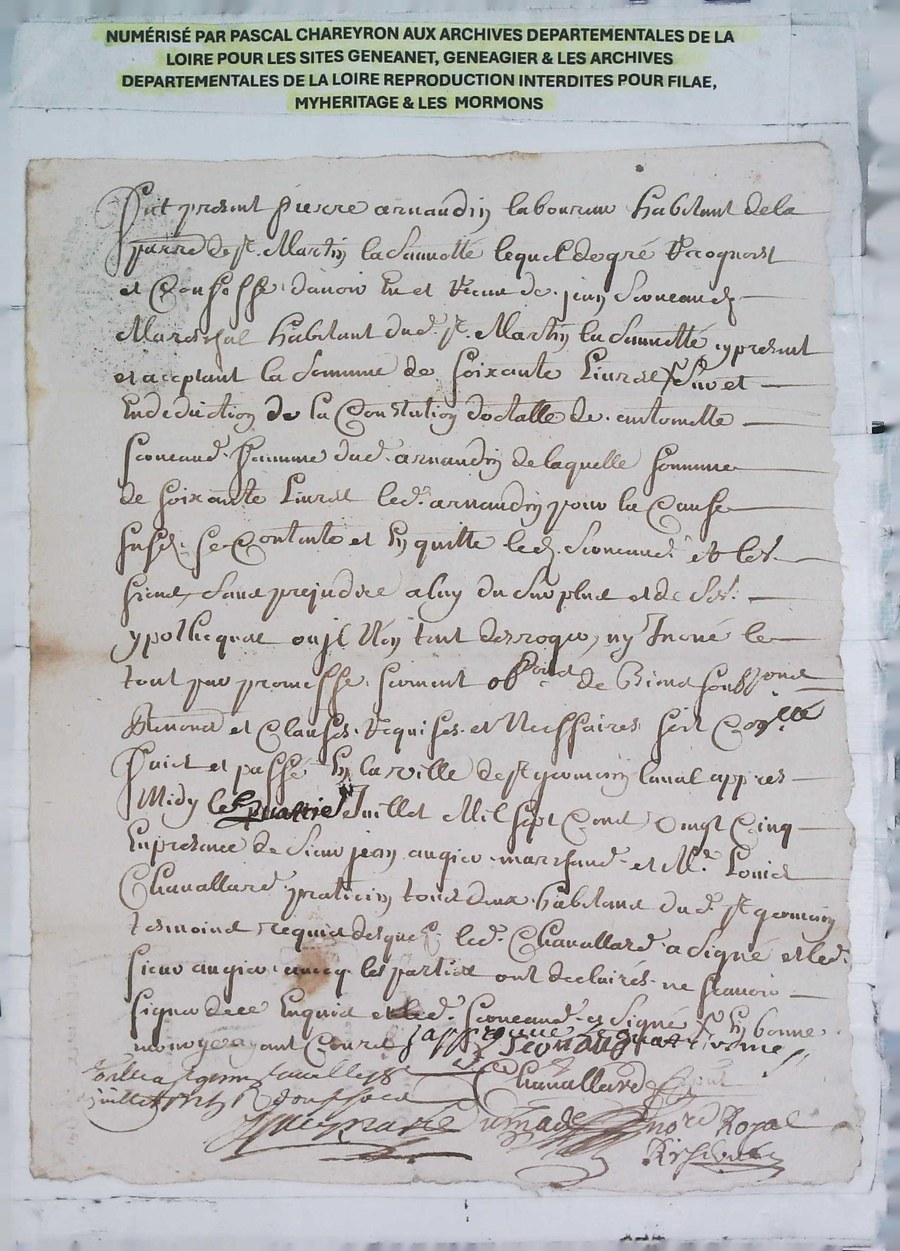 NUMÉRISÉ PAR PASCAL CHAREYRON AUX ARCHIVES DEPARTEMENTALES DE LA
LOIRE POUR LES SITES GENEANET, GENEAGIER & LES ARCHIVES
DEPARTEMENTALES DE LA LOIRE REPRODUCTION INTERDITES POUR FILAE,
MYHERITAGE & LES MORMONS
Fut present pierre arnaudin laboureur habitant de la
parre de st. Martin la Sauvetté lequel de gré Recognoist
et Confesse d'avoir Eu et Receu de jean
Mareschal habitant dud. st. Martin la Sauvetté cy present
et acceptant la Somme de soixante Livres Sur et
En deduction de la Constution dotalle de antoinette
femme dud. arnaudin de laquelle somme
de soixante Livres led. arnaudin pour la Cause
susd. se Contente et En quitte led. et les
siens, sans prejudice a luy du surplus et de ses
ypotheques ny Inové le
tout par promesse serment de Biens
Renond et Clauses Requises et Necessaires sert
Faict et passé En la ville de st germain laval appres
Midy le quattre Juillet Mil sept Cens vingt Cinq
En presence de Sieur jean augier marchand et Me. Louis
Chavallard praticien tous deux habitans dud. st germain
tesmoins requis desquels led. Chavallard a signé et led.
sieur augier avecq les parties ont declairés ne scavoir
signer de ce Enquis et led. a signé En bonne
monoye ayant Cours japprouve quatriesme
Chavallard
juillet
nore Royal